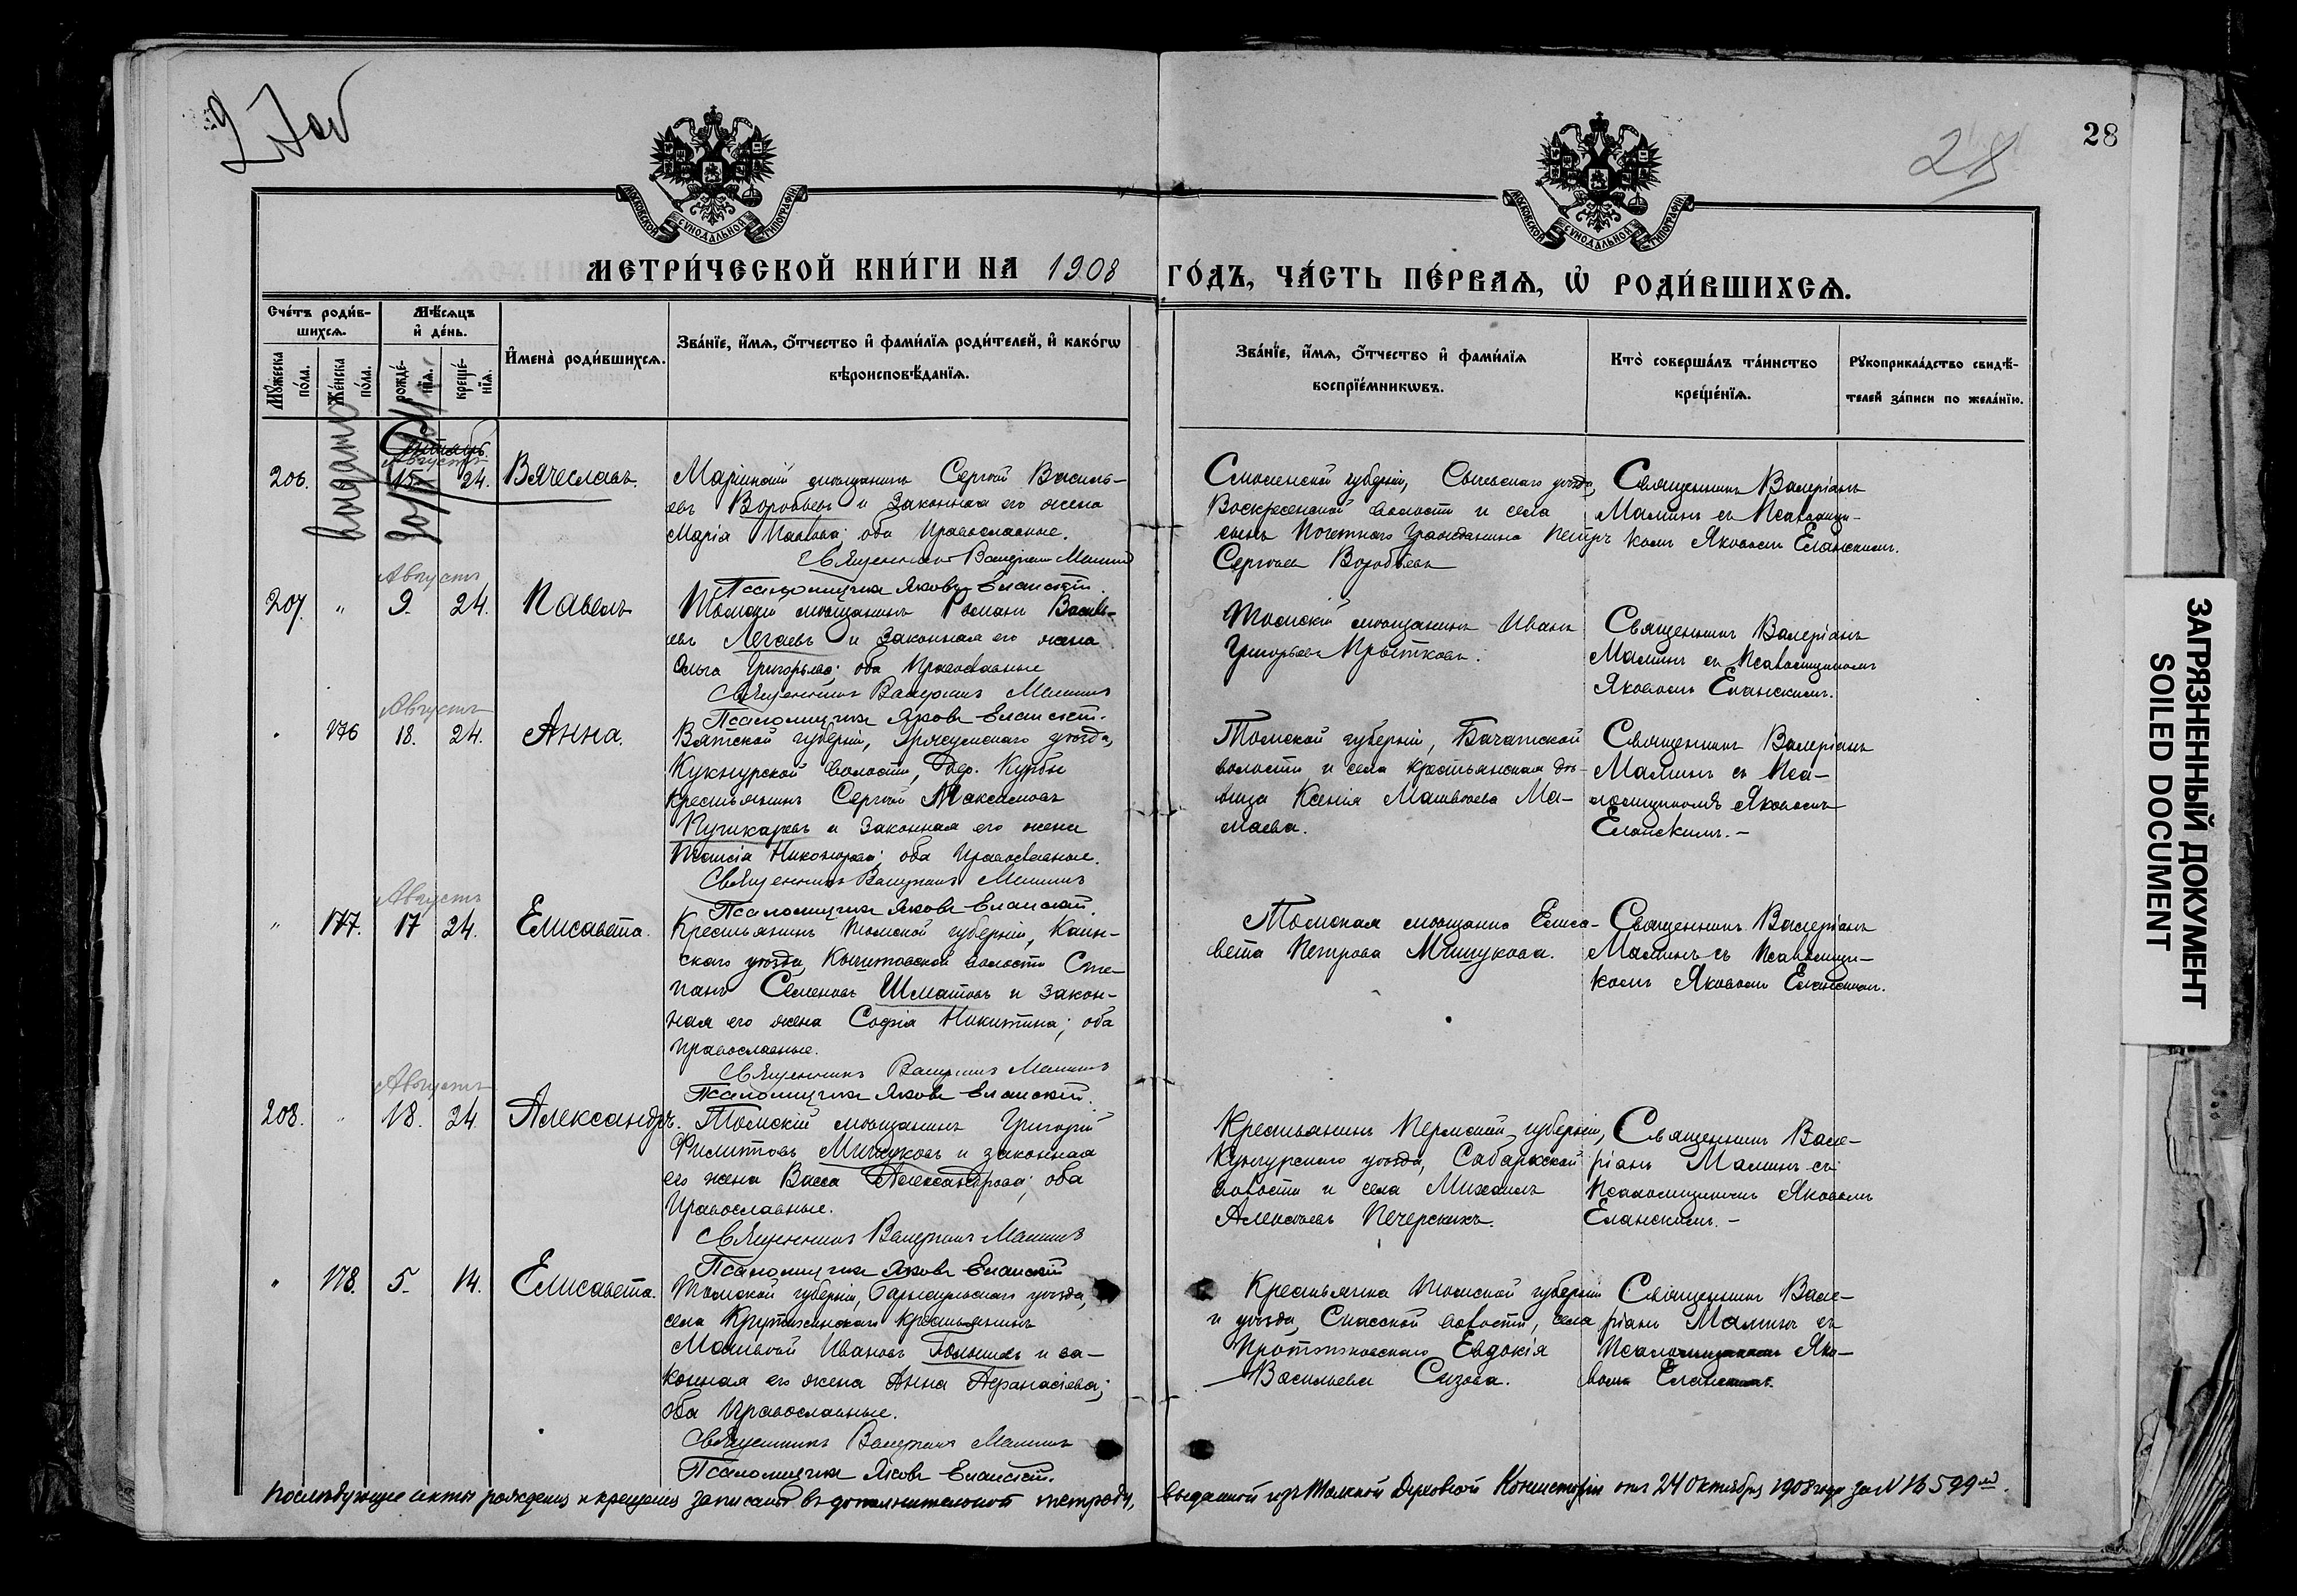 28
28
МОСКОВСКОЙ СѴНОДАЛЬНОЙ ТИПОГРАФІИ
МОСКОВСКОЙ СѴНОДАЛЬНОЙ ТИПОГРАФІИ
МЕТРИ́ЧЕСКОЙ КНИ́ГИ НА 1908 ГО́ДЪ, ЧА́СТЬ ПЕ́РВАѦ, Ѡ҆ РОДИ́ВШИХСѦ.
Сче́тъ роди́в-
шихсѧ.
Мꙋ́жеска по́ла.
Же́нска по́ла.
Мѣ́сѧцъ
и҆ де́нь.
рожде́-
нїѧ.
креще́-
нїѧ.
И҆мена̀ роди́вшихсѧ.
Зва́нїе, и҆́мѧ, ѻ҆́тчество и҆ фами́лїѧ роди́телей, и҆ како́гѡ
вѣроисповѣ́данїѧ.
Зва́нїе, и҆́мѧ, ѻ҆́тчество и҆ фами́лїѧ
воспрїе́мникѡвъ.
Кто̀ соверша́лъ та́инство
креще́нїѧ.
Рꙋкоприкла́дство свидѣ́-
телей за́писи по жела́нїю.
Августъ
206. 15. 24. Вячеславъ.
Маріинскій мѣщанинъ Сергѣй Василь-
евъ Воробьевъ и законная его жена
Марія Павлова; оба Православные.
Священникъ Валеріанъ Малинъ
Псаломщикъ Яковъ Еланскій.
Смоленской губерніи, Сычевскаго уѣзда,
Воскресенской волости и села
сынъ Почетнаго Гражданина Петръ
Сергѣевъ Воробьевъ
Священникъ Валеріанъ
Малинъ съ Псаломщи-
комъ Яковомъ Еланскимъ.
Августъ
207. " 9. 24. Павелъ
Томскій мѣщанинъ Романъ Василь-
евъ Легаевъ и законная его жена
Ольга Григорьева; оба Православные
Священникъ Валеріанъ Малинъ
Псаломщикъ Яковъ Еланскій.
Томскій мѣщанинъ Иванъ
Григорьевъ Прытковъ.
Священникъ Валеріанъ
Малинъ съ Псаломщикомъ
Яковомъ Еланскимъ.
Августъ
" 176 18. 24. Анна.
Вятской губерніи, Уржумскаго уѣзда,
Кукнурской волости, дер. Курбы
крестьянинъ Сергѣй Максимовъ
Пушкаревъ и законная его жена
Таисія Никонорова; оба Православные.
Священникъ Валеріанъ Малинъ
Псаломщикъ Яковъ Еланскій.
Томской губерніи, Бачатской
волости и села крестьянская дѣ-
вица Ксенія Матвѣева Ма-
маева.
Священникъ Валеріанъ
Малинъ съ Пса-
ломщикомъ Яковомъ
Еланскимъ.-
Августъ
" 177. 17 24. Елисавета.
Крестьянинъ Томской губерніи, Каин-
скаго уѣзда, Кыштовской волости Сте-
панъ Семеновъ Шматовъ и закон-
ная его жена Софія Никитина; оба
Православные.
Священникъ Валеріанъ Малинъ
Псаломщикъ Яковъ Еланскій.
Томская мѣщанка Елиса-
вета Петрова Мишукова.
Священникъ Валеріанъ
Малинъ съ Псаломщи-
комъ Яковомъ Еланскимъ.
Августъ
208. " 18. 24. Александръ.
Томскій мѣщанинъ Григорій
Филиповъ Мишуковъ и законная
его жена Васса Александрова; оба
Православные.
Священникъ Валеріанъ Малинъ
Псаломщикъ Яковъ Еланскій
Крестьянинъ Пермской губерніи,
Кунгурскаго уѣзда, Сабарской
волости и села Михаилъ
Алексѣевъ Печерскихъ.
Священникъ Вале-
ріанъ Малинъ съ
Псаломщикомъ Яковомъ
Еланскимъ.-
" 178. 5. 14. Елисавета.
Томской губерніи, Барнаульскаго уѣзда,
села Крутихинскаго крестьянинъ
Матвѣй Ивановъ и за-
конная его жена Анна Афанасіева;
оба Православные.
Священникъ Валеріанъ Малинъ
Псаломщикъ Яковъ Еланскій.
Крестьянка Томской губерніи
и уѣзда, Спасской волости, села
Протопоповскаго Евдокія
Васильева Сизова.
Священникъ Вале-
ріанъ Малинъ съ
Псаломщикомъ Яко-
вомъ Еланскимъ.
Послѣдующіе акты рожденія и крещенія записаны въ дополнительной тетради, выданной изъ Томской Духовной Консисторіи отъ 24 Октября 1908 года за №
ЗАГРЯЗНЕННЫЙ ДОКУМЕНТ
SOILED DOCUMENT